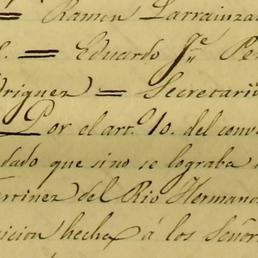 = Ramon Larrainzar
S. = Eduardo J.e Pe
driguez = Secretario
Por el art.o 10. del conv
dado que sino se lograba
artinez del Rio Hermano
sicion hecha á los Señor